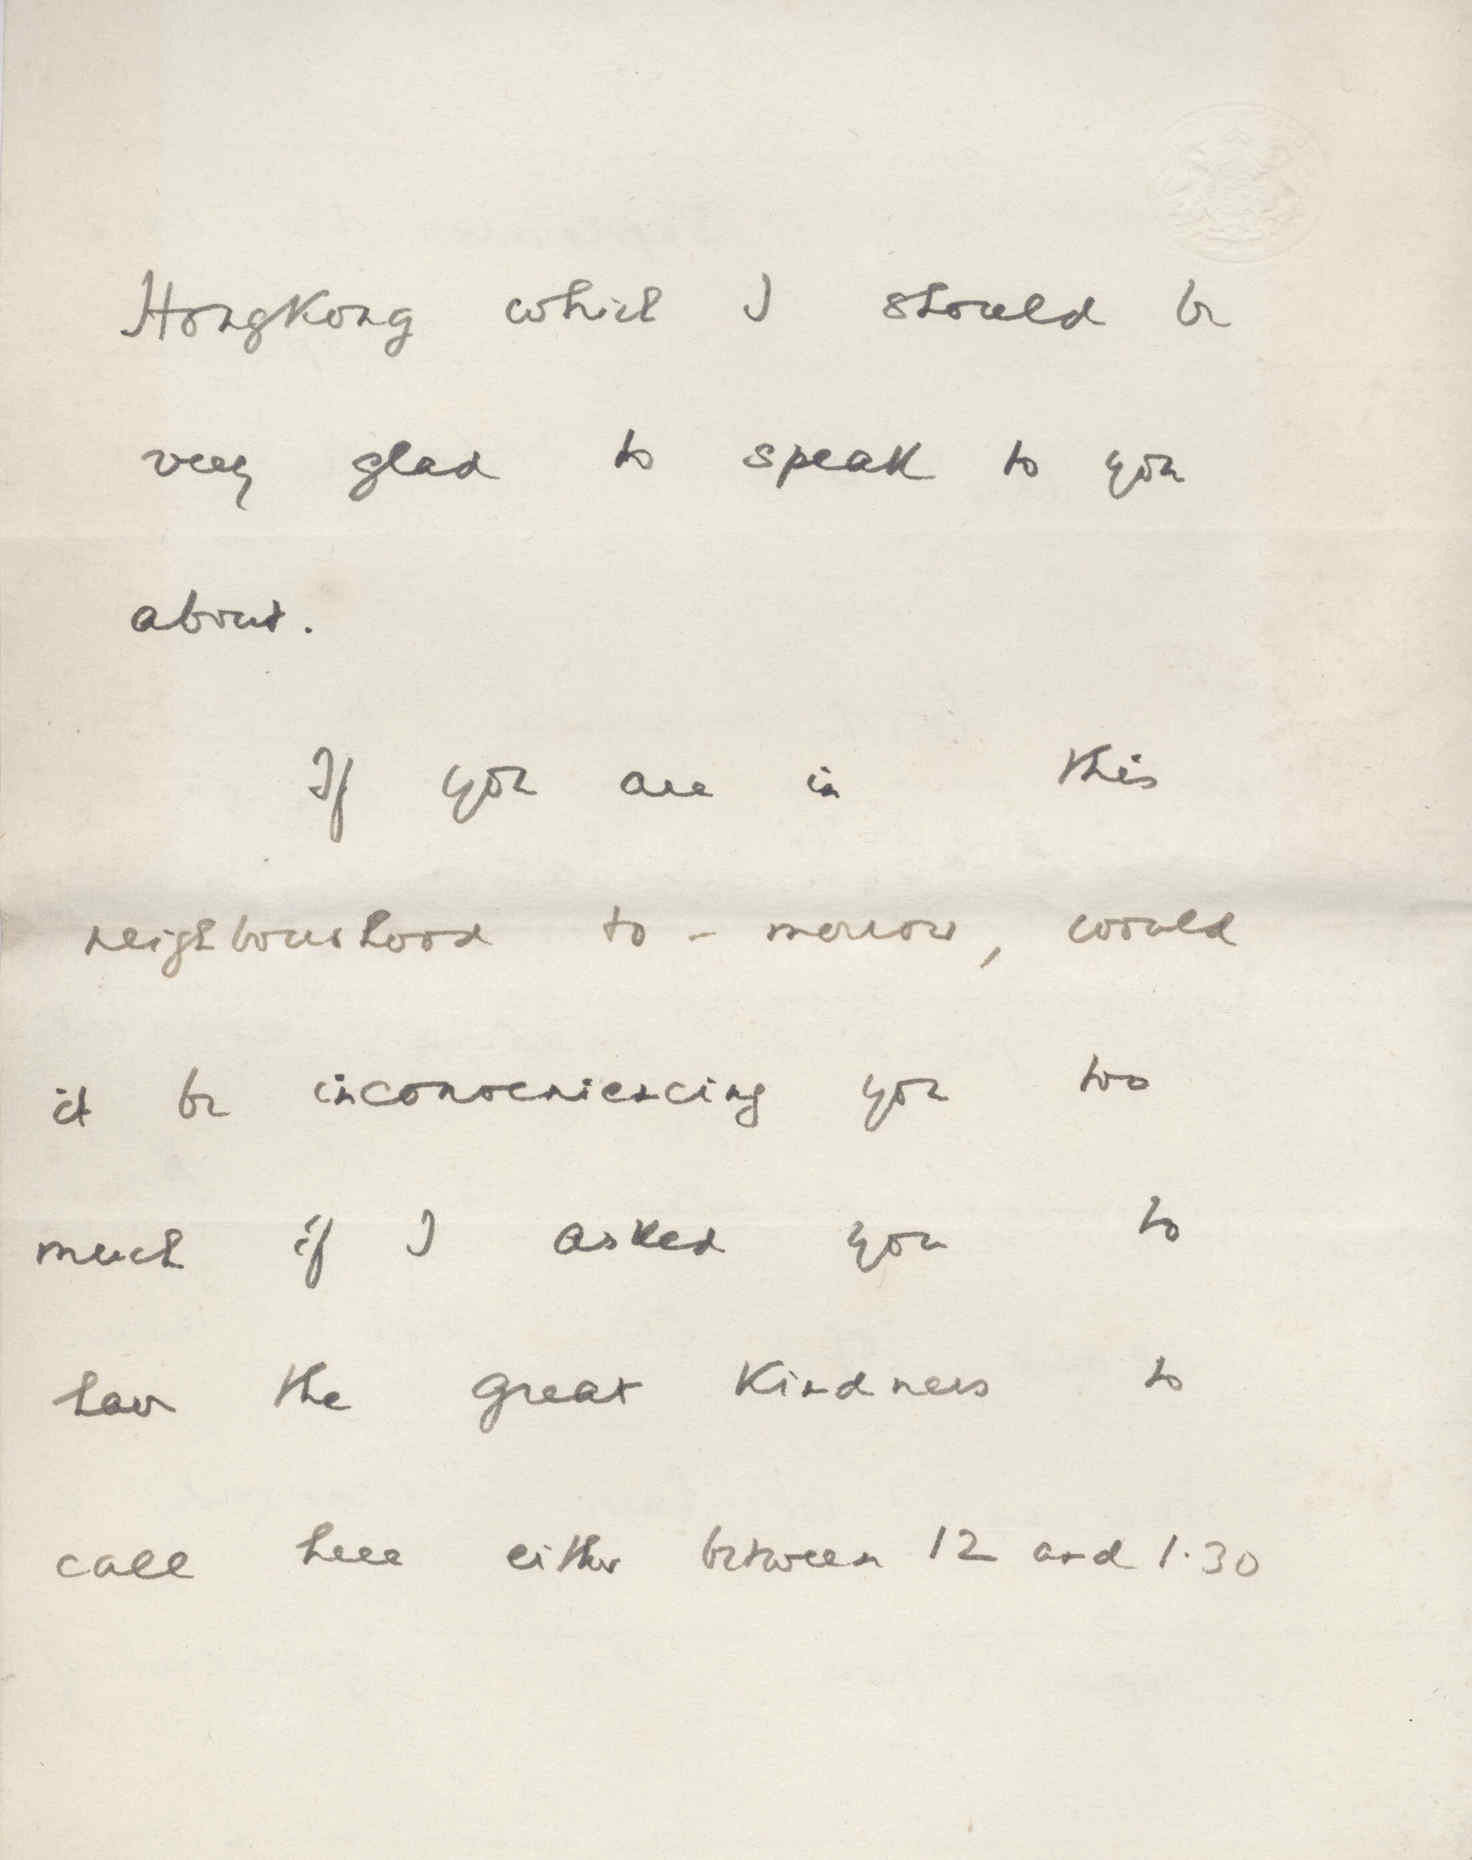 HongKong which I should be
very glad to speak to you
about.
If you are in this
neighbourhood to-morrow, would
it be inconveniencing you too
much if I asked you to
have the great kindness to
call here either between 12 and 1.30